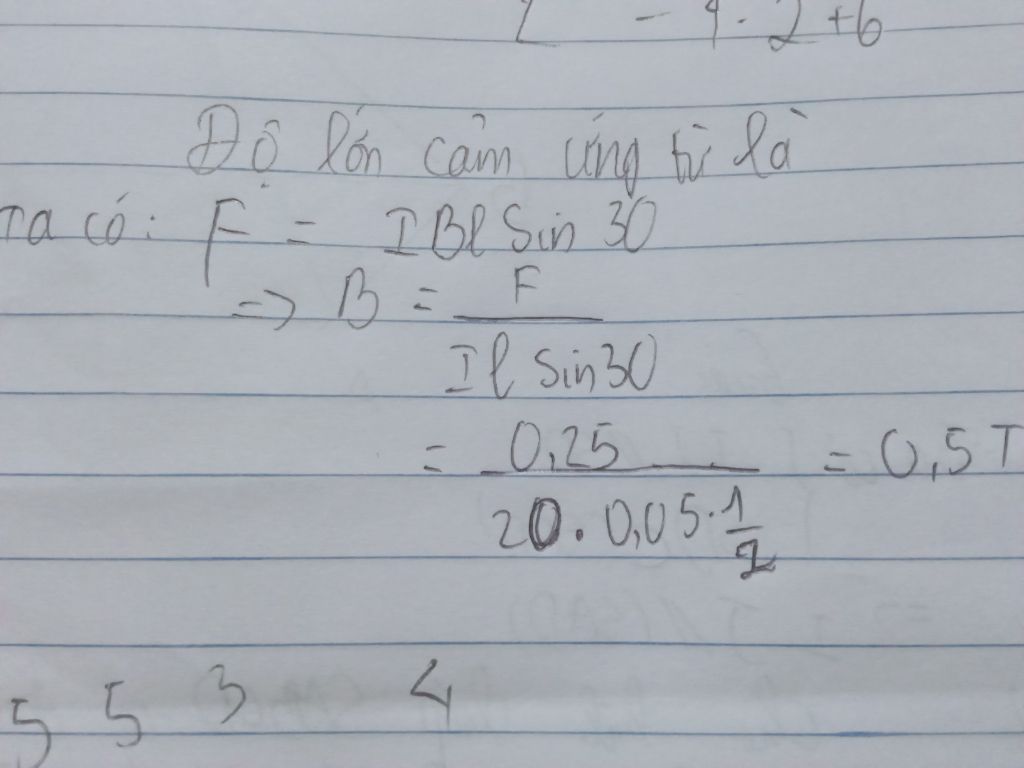 - 1 . 2 + 6
Độ lớn cảm ứng từ là
Ta có: F = IBl Sin 30
=> B = F / Il Sin30
= 0,25 / 20 . 0,05 . 1/2 = 0,5 T
5 5 3 4